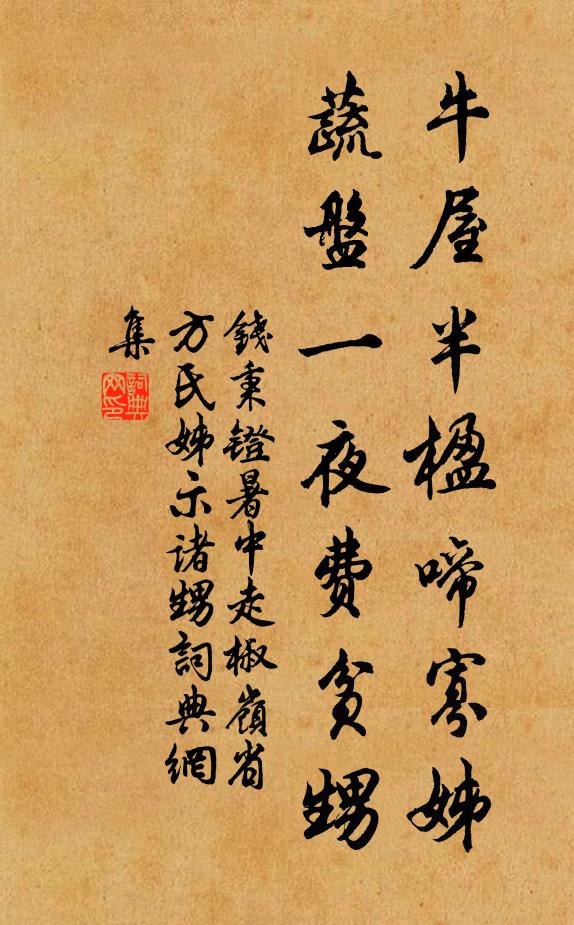 牛屋半楹啼寡姊
蔬盤一夜費貧甥
錢秉鐙暑中走椒嶺省
方氏姊示諸甥詞典網
集
詞典
网印